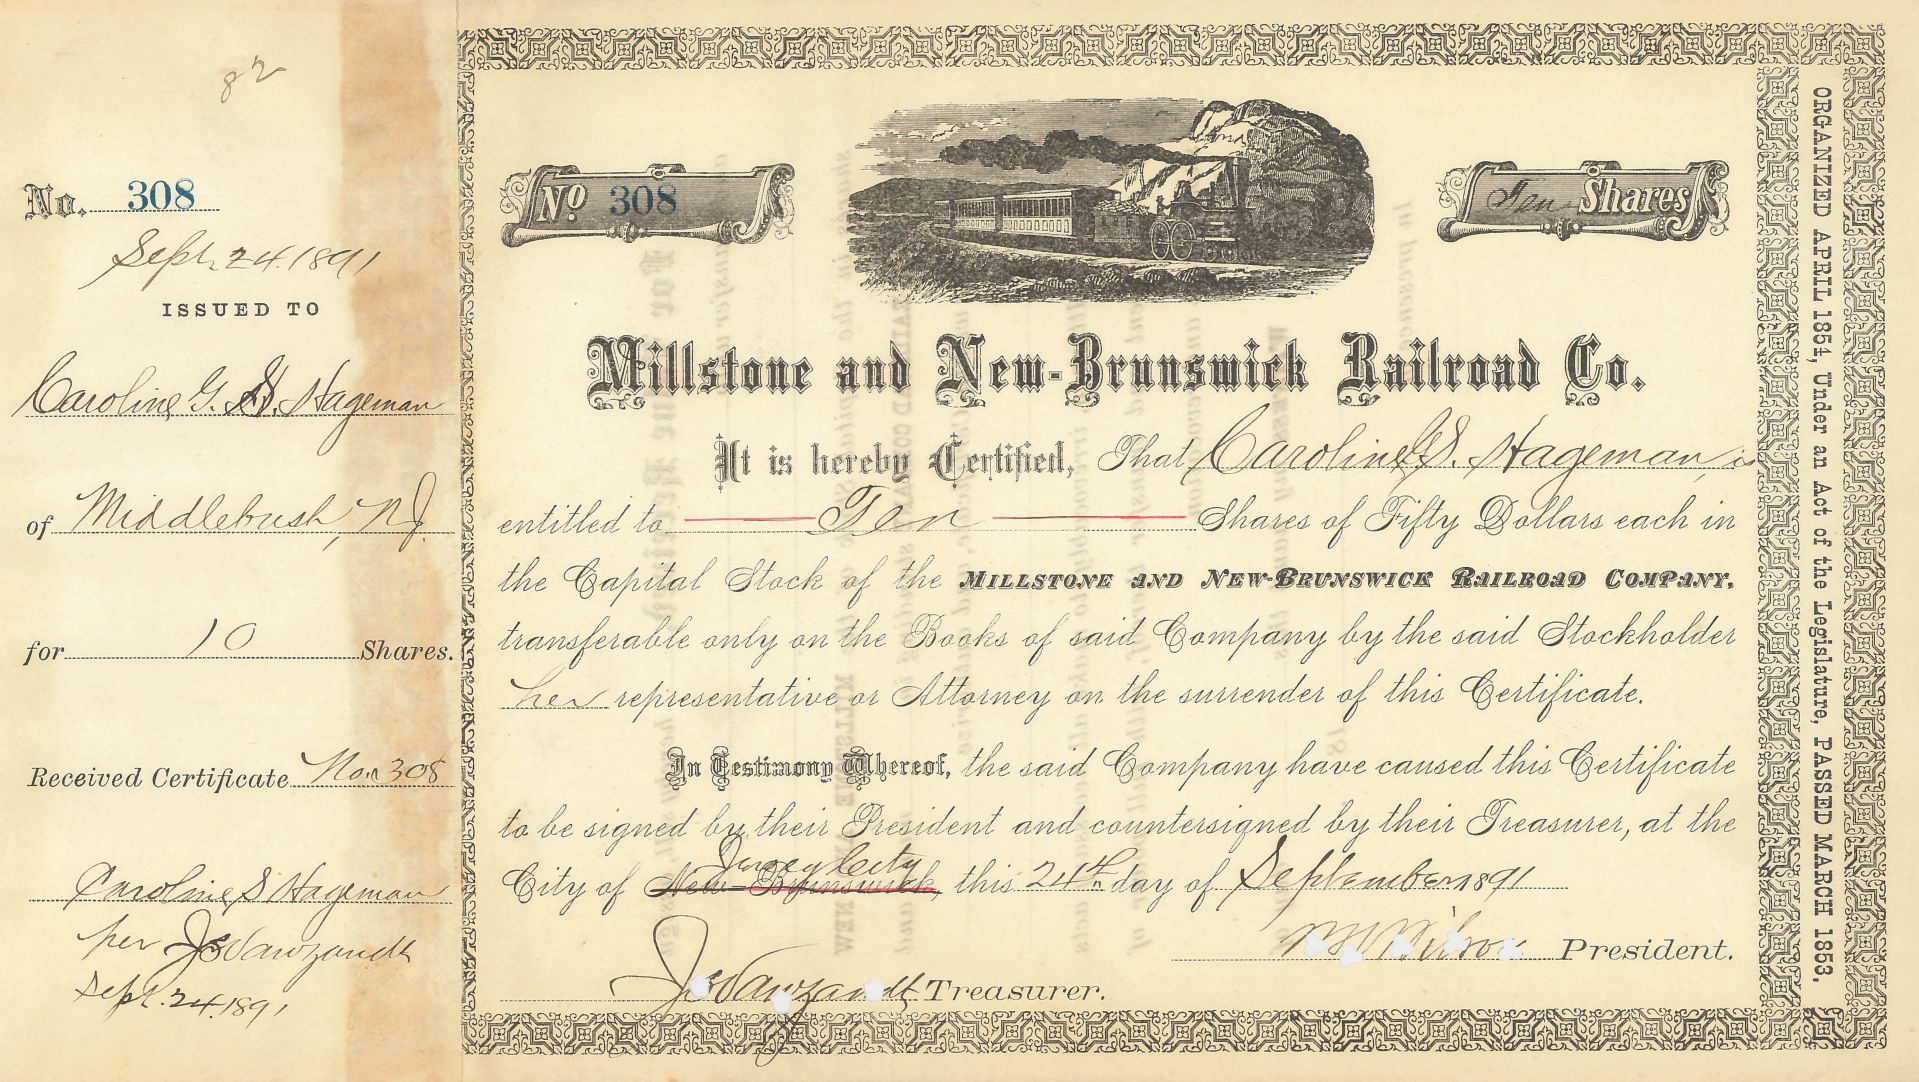 82
No. 308
Sept. 24. 1891
ISSUED TO
Caroline G. S. Hageman
of Middlebush, N.J.
for 10 Shares.
Received Certificate No. 308
Caroline S Hageman
per J S Vanzandt
Sept. 24. 1891
No 308
Ten Shares
Millstone and New-Brunswick Railroad Co.
It is hereby Certified, That Caroline G. S. Hageman, is
entitled to Ten Shares of Fifty Dollars each in
the Capital Stock of the MILLSTONE AND NEW-BRUNSWICK RAILROAD COMPANY.
transferable only on the Books of said Company by the said Stockholder
her representative or Attorney on the surrender of this Certificate.
In Testimony Whereof, the said Company have caused this Certificate
to be signed by their President and countersigned by their Treasurer, at the
Jersey City
City of New-Brunswick, this 24th day of September 1891
Wilson President.
J S Vanzandt Treasurer.
ORGANIZED APRIL 1854, Under an Act of the Legislature, PASSED MARCH 1853.